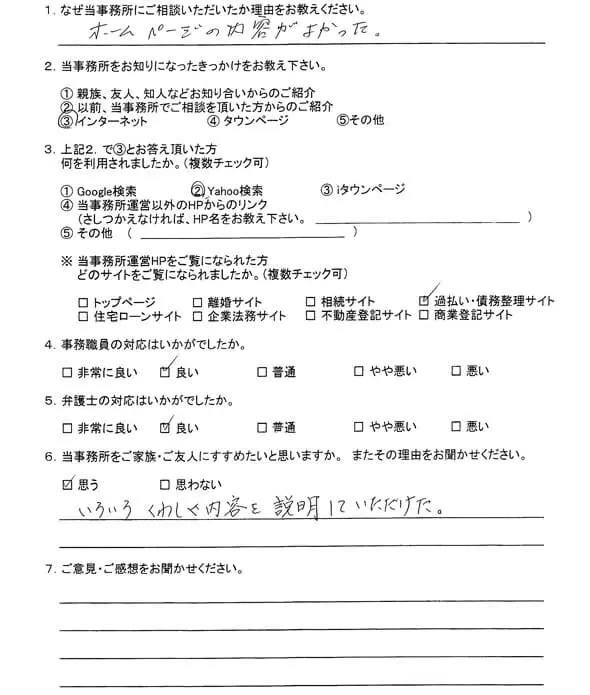 1. なぜ当事務所にご相談いただいたか理由をお教えください。
ホームページの内容がよかった。
2. 当事務所をお知りになったきっかけをお教え下さい。
① 親族、友人、知人などお知り合いからのご紹介
② 以前、当事務所でご相談を頂いた方からのご紹介
③ インターネット ④ タウンページ ⑤その他
3. 上記2. で③とお答え頂いた方
何を利用されましたか。(複数チェック可)
① Google検索 ② Yahoo検索 ③ iタウンページ
④ 当事務所運営以外のHPからのリンク
(さしつかえなければ、HP名をお教え下さい。 )
⑤ その他 ( )
※ 当事務所運営HPをご覧になられた方
どのサイトをご覧になられましたか。(複数チェック可)
□ トップページ □ 離婚サイト □ 相続サイト ☑ 過払い・債務整理サイト
□ 住宅ローンサイト □ 企業法務サイト □ 不動産登記サイト □ 商業登記サイト
4. 事務職員の対応はいかがでしたか。
□ 非常に良い ☑ 良い □ 普通 □ やや悪い □ 悪い
5. 弁護士の対応はいかがでしたか。
□ 非常に良い ☑ 良い □ 普通 □ やや悪い □ 悪い
6. 当事務所をご家族・ご友人にすすめたいと思いますか。 またその理由をお聞かせください。
☑ 思う □ 思わない
いろいろくわしく内容を説明していただけた。
7. ご意見・ご感想をお聞かせください。